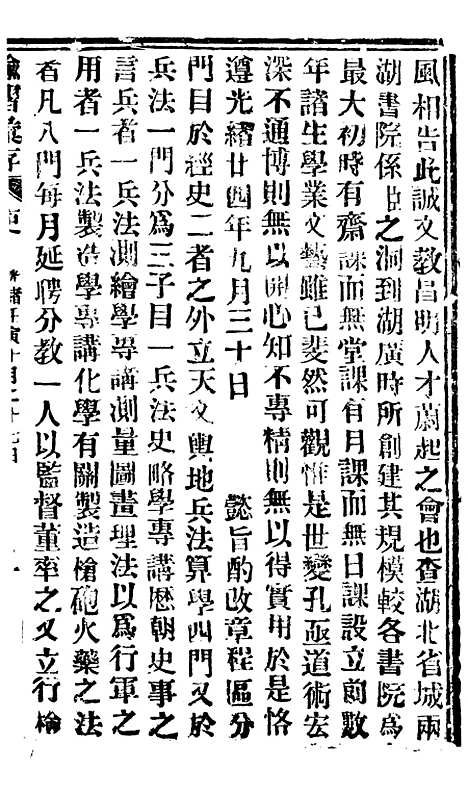 風相告此誠文教昌明人才蔚起之會也查湖北省城兩
湖書院係臣之洞到湖廣時所創建其規模較各書院爲
最大初時有齋課而無堂課有月課而無日課設立前數
年諸生學業文藝雖已斐然可觀惟是世變孔亟道術宏
深不通博則無以開心知不專精則無以得實用於是恪
遵光緒廿四年九月三十日　懿旨酌改章程區分
門目於經史二者之外立天文輿地兵法算學四門又於
兵法一門分爲三子目一兵法史略學專講歷朝史事之
言兵者一兵法測繪學專講測量圖畫理法以爲行軍之
用者一兵法製造學專講化學有關製造槍砲火藥之法
者凡八門每月延聘分教一人以監督董率之又立行檢
光緒壬寅十月二十七日